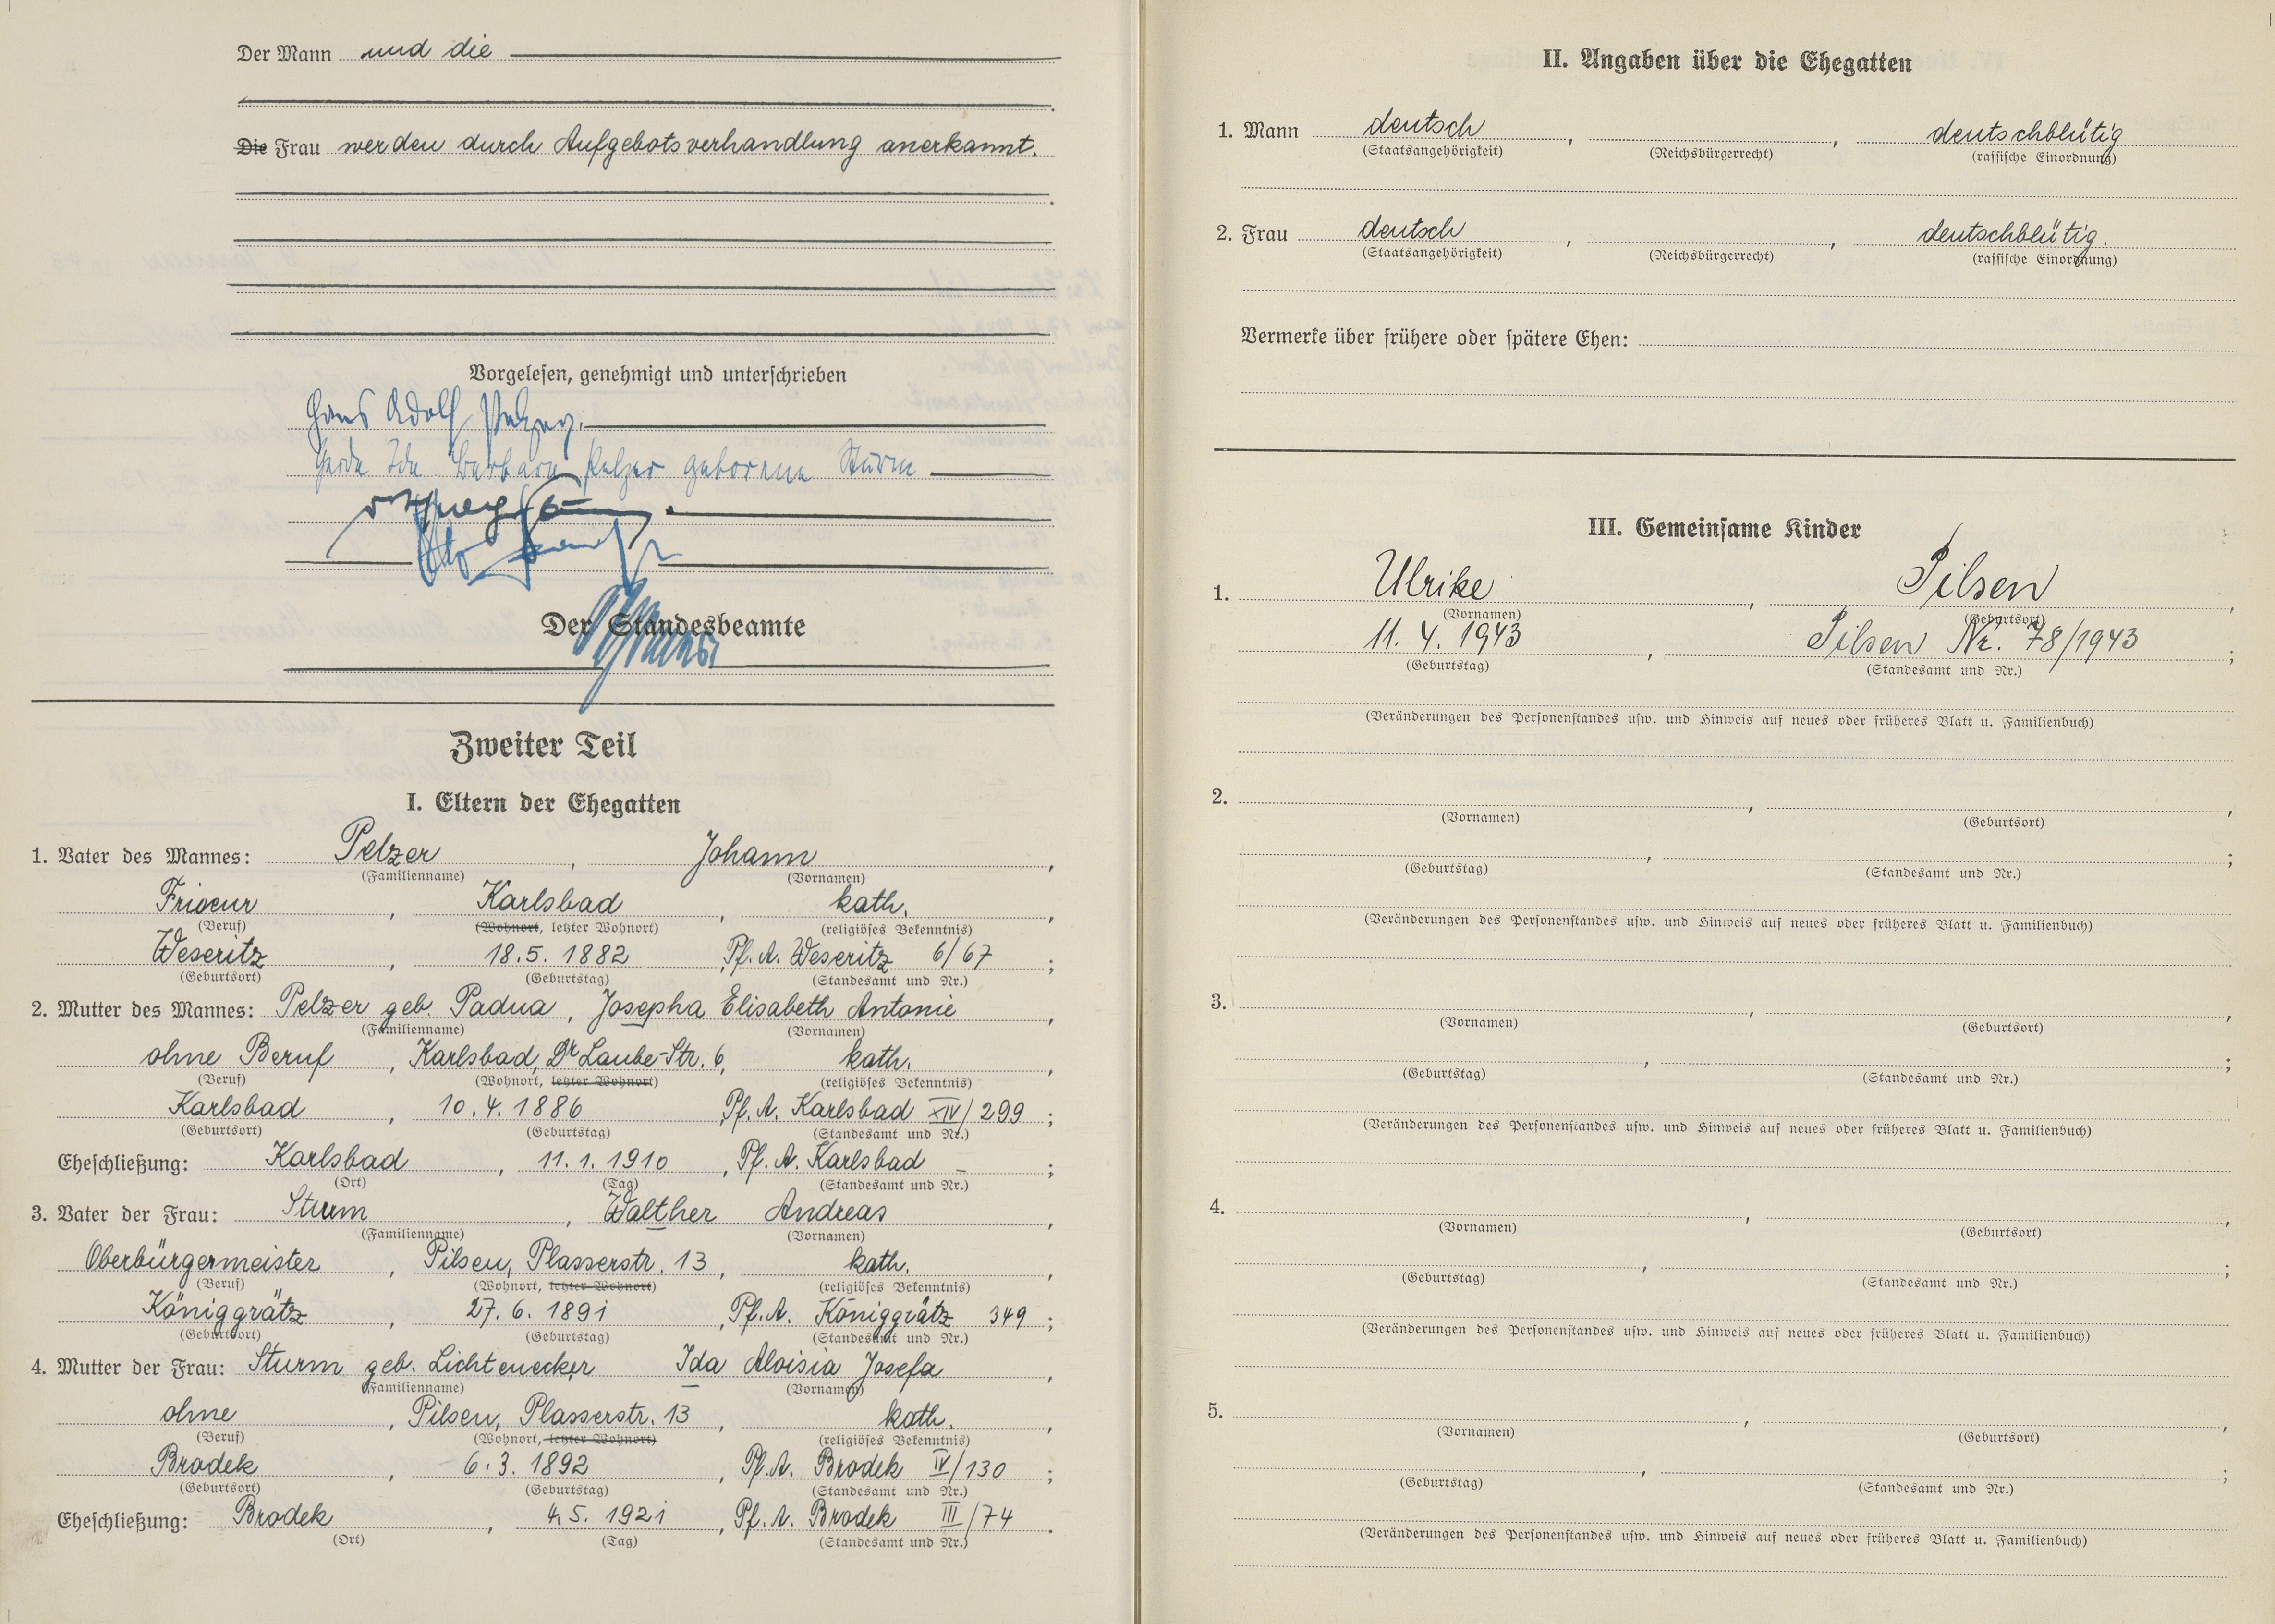 Der Mann und die
Die Frau werden durch Aufgebotsverhandlung anerkannt.
Vorgelesen, genehmigt und unterschrieben
Hans Adolf Pelzer.
Gerda Ida Barbara Pelzer geborene Sturm
Der Standesbeamte
Zweiter Teil
I. Eltern der Ehegatten
1. Vater des Mannes: Pelzer, Johann,
(Familienname) (Vornamen)
Friseur, Karlsbad, kath.,
(Beruf) (Wohnort, letzter Wohnort) (religiöses Bekenntnis)
Weseritz, 18.5.1882, Pf. A. Weseritz 6/67;
(Geburtsort) (Geburtstag) (Standesamt und Nr.)
2. Mutter des Mannes: Pelzer geb. Padua, Josepha Elisabeth Antonie,
(Familienname) (Vornamen)
ohne Beruf, Karlsbad, Dr Laube-Str. 6, kath.,
(Beruf) (Wohnort, letzter Wohnort) (religiöses Bekenntnis)
Karlsbad, 10.4.1886, Pf. A. Karlsbad XIV/299;
(Geburtsort) (Geburtstag) (Standesamt und Nr.)
Eheschließung: Karlsbad, 11.1.1910, Pf. A. Karlsbad –;
(Ort) (Tag) (Standesamt und Nr.)
3. Vater der Frau: Sturm, Walther Andreas,
(Familienname) (Vornamen)
Oberbürgermeister, Pilsen, Plasserstr. 13, kath.,
(Beruf) (Wohnort, letzter Wohnort) (religiöses Bekenntnis)
Königgrätz, 27.6.1891, Pf. A. Königgrätz 349;
(Geburtsort) (Geburtstag) (Standesamt und Nr.)
4. Mutter der Frau: Sturm geb. Lichtenecker Ida Aloisia Josefa,
(Familienname) (Vornamen)
ohne, Pilsen, Plasserstr. 13, kath.,
(Beruf) (Wohnort, letzter Wohnort) (religiöses Bekenntnis)
Brodek, 6.3.1892, Pf. A. Brodek IV/130;
(Geburtsort) (Geburtstag) (Standesamt und Nr.)
Eheschließung: Brodek, 4.5.1921, Pf. A. Brodek III/74.
(Ort) (Tag) (Standesamt und Nr.)
II. Angaben über die Ehegatten
1. Mann deutsch, , deutschblütig
(Staatsangehörigkeit) (Reichsbürgerrecht) (rassische Einordnung)
2. Frau deutsch, , deutschblütig.
(Staatsangehörigkeit) (Reichsbürgerrecht) (rassische Einordnung)
Vermerke über frühere oder spätere Ehen:
III. Gemeinsame Kinder
1. Ulrike, Pilsen,
(Vornamen) (Geburtsort)
11.4.1943, Pilsen Nr. 78/1943;
(Geburtstag) (Standesamt und Nr.)
(Veränderungen des Personenstandes usw. und Hinweis auf neues oder früheres Blatt u. Familienbuch)
2. , ,
(Vornamen) (Geburtsort)
, ;
(Geburtstag) (Standesamt und Nr.)
(Veränderungen des Personenstandes usw. und Hinweis auf neues oder früheres Blatt u. Familienbuch)
3. , ,
(Vornamen) (Geburtsort)
, ;
(Geburtstag) (Standesamt und Nr.)
(Veränderungen des Personenstandes usw. und Hinweis auf neues oder früheres Blatt u. Familienbuch)
4. , ,
(Vornamen) (Geburtsort)
, ;
(Geburtstag) (Standesamt und Nr.)
(Veränderungen des Personenstandes usw. und Hinweis auf neues oder früheres Blatt u. Familienbuch)
5. , ,
(Vornamen) (Geburtsort)
, ;
(Geburtstag) (Standesamt und Nr.)
(Veränderungen des Personenstandes usw. und Hinweis auf neues oder früheres Blatt u. Familienbuch)